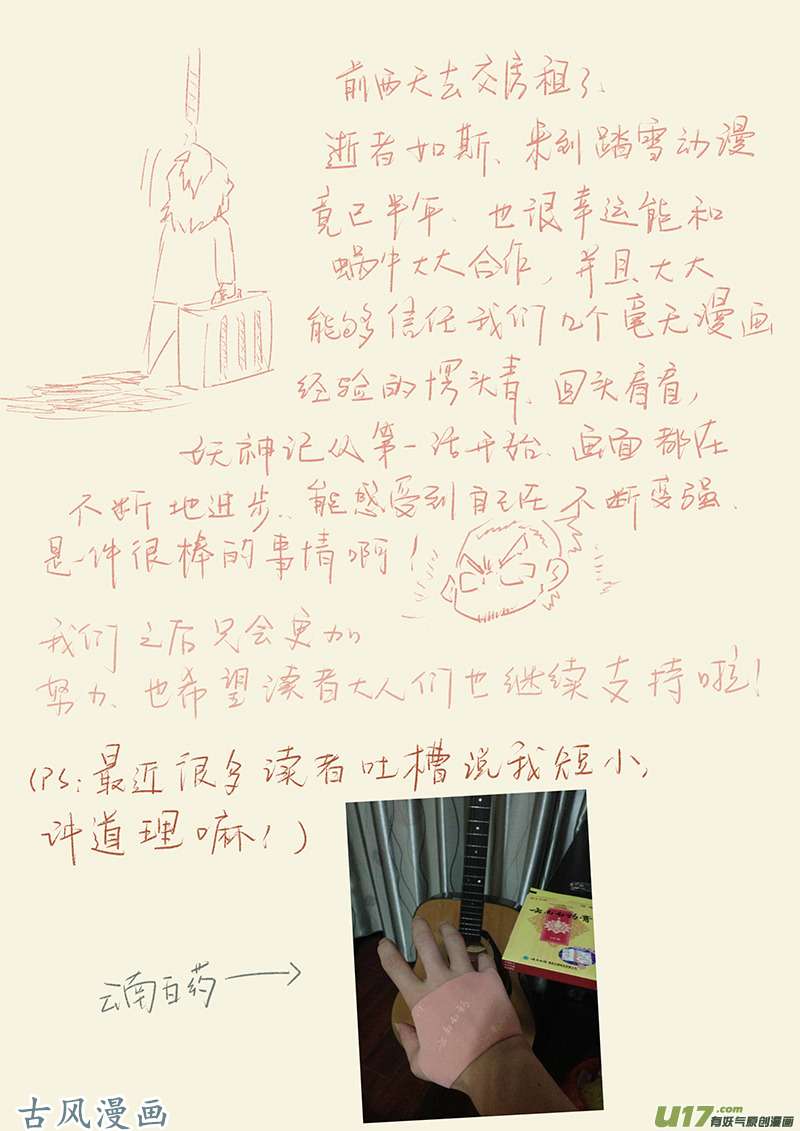 前两天去交房租了、
逝者如斯、来到踏雪动漫
竟已半年、也很幸运能和
蜗牛大大合作,并且大大
能够信任我们几个毫无漫画
经验的愣头青、回头看看,
妖神记从第一话开始、画面都在
不断地进步、能感受到自己在不断变强、
是一件很棒的事情啊!
我们之后只会更加
努力、也希望读者大人们也继续支持啦!
(PS:最近很多读者吐槽说我短小,
讲道理嘛!)
云南白药
云南白药膏
云南白药
古风漫画
U17.com
有妖气原创漫画